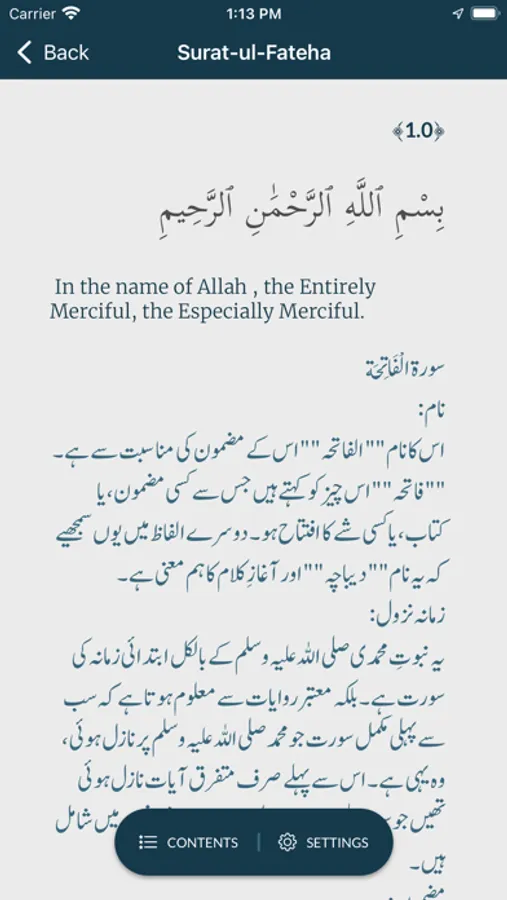 Carrier 1:13 PM
Back Surat-ul-Fateha
﴾1.0﴿
بِسْمِ ٱللَّهِ ٱلرَّحْمَٰنِ ٱلرَّحِيمِ
In the name of Allah , the Entirely
Merciful, the Especially Merciful.
سورة الْفَاتِحَة
نام:
اس کا نام ""الفاتحہ"" اس کے مضمون کی مناسبت سے ہے۔
""فاتحہ"" اس چیز کو کہتے ہیں جس سے کسی مضمون، یا
کتاب، یا کسی شے کا افتتاح ہو۔ دوسرے الفاظ میں یوں سمجھیے
کہ یہ نام ""دیباچہ"" اور آغازِ کلام کا ہم معنی ہے۔
زمانہ نزول:
یہ نبوتِ محمدی صلی اللہ علیہ وسلم کے بالکل ابتدائی زمانہ کی
سورت ہے۔ بلکہ معتبر روایات سے معلوم ہوتا ہے کہ سب
سے پہلی مکمل سورت جو محمد صلی اللہ علیہ وسلم پر نازل ہوئی،
وہ یہی ہے۔ اس سے پہلے صرف متفرق آیات نازل ہوئی
تھیں جو میں شامل
ہیں۔
CONTENTS | SETTINGS